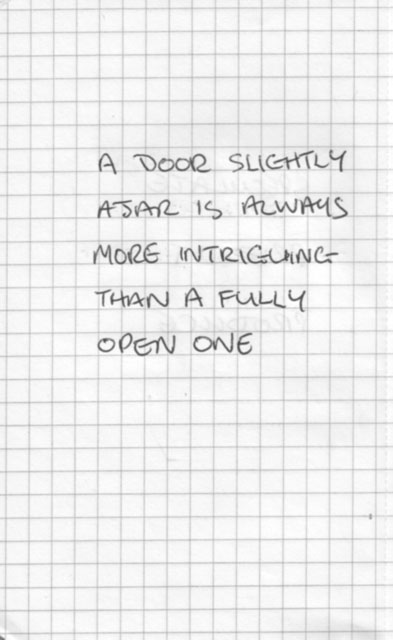 A DOOR SLIGHTLY
AJAR IS ALWAYS
MORE INTRIGUING
THAN A FULLY
OPEN ONE